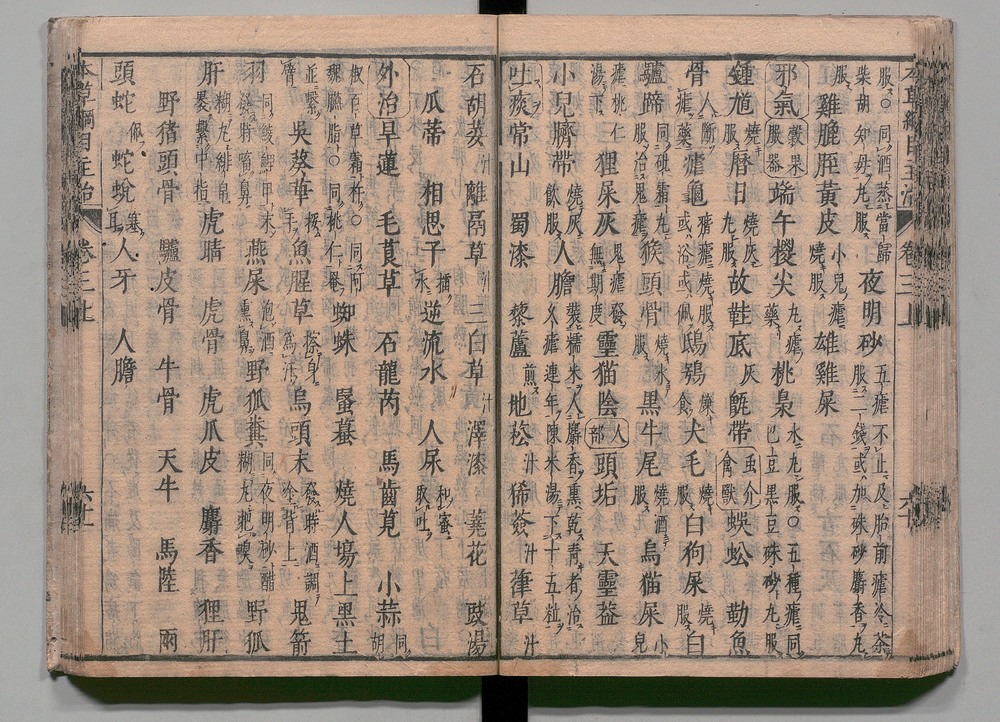 服○同酒蒸當歸 夜明砂 五瘧不止及胎前瘧冷茶
柴胡知母丸服 服二錢或加硃砂麝香丸
服 雞䏶胵黃皮 小兒瘧燒服 雄雞屎
邪氣 穀果服器 端午椶尖 丸瘧藥 桃梟 水丸服○五種瘧同巴豆黑豆硃砂丸服
鍾馗 燒灰服 曆日 燒灰丸服 故鞋底 灰 甑帶 虫介禽獸 蜈蚣 勒魚
骨 人斷瘧藥 瘧龜 痎瘧燒服或浴或佩 鴟鵂 煤食 犬毛 燒服 白狗屎 燒服 白
驢蹄 同砒霜丸服治鬼瘧 猴頭骨 燒水服 黑牛尾 燒酒服 烏猫屎 小兒
瘧桃仁湯下 狸屎灰 鬼瘧發無期度 靈猫陰 人部 頭垢 天靈葢
小兒臍帶 燒灰飲服 人膽 裝糯米入麝香熏乾青者治久瘧連年陳米湯下十五粒
吐痰常山 蜀漆 藜蘆 煎 地菘 汁 豨薟 汁 葎草 汁
石胡荽 汁 離鬲草 汁 三白草 汁 澤漆 蕘花 豉湯
瓜蒂 相思子 擂水 逆流水 人尿 和蜜取吐
外治旱蓮 毛茛草 石龍芮 馬齒莧 小蒜 同胡
椒百草霜杵○同阿魏臙脂○同桃仁罨 蜘蛛 蝱蟇 燒人塲上黑土
並繫臂 吳葵草 挼手 魚腥草 擦身為汗 烏頭末 發時酒調塗背上 鬼箭
羽 同鯪鯉甲末發時嗃鼻 燕屎 泡酒熏鼻 野狐糞 同夜明砂醋糊丸把嗅 野狐
肝 糊丸緋帛裹繫中指 虎睛 虎骨 虎爪皮 麝香 狸肝
野猪頭骨 驢皮骨 牛骨 天牛 馬陸 兩
頭蛇 佩 蛇蛻 塞耳 人牙 人膽
本草綱目主治 卷三上